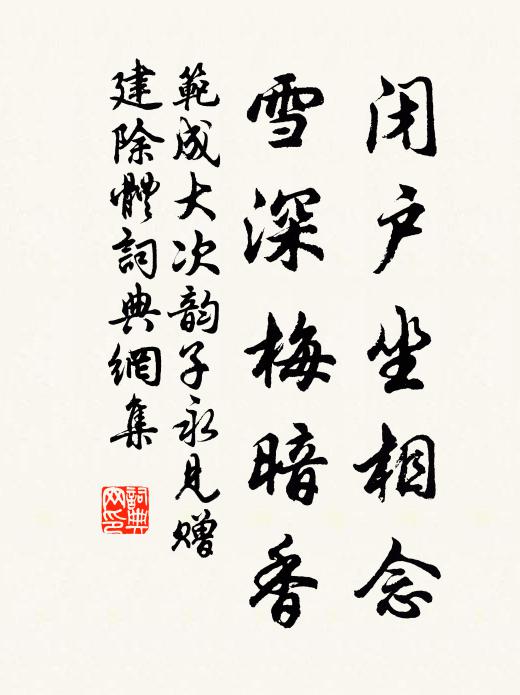 闭户坐相念
雪深梅暗香
範成大次韵子永见赠
建除體詞典網集
詞典
网印